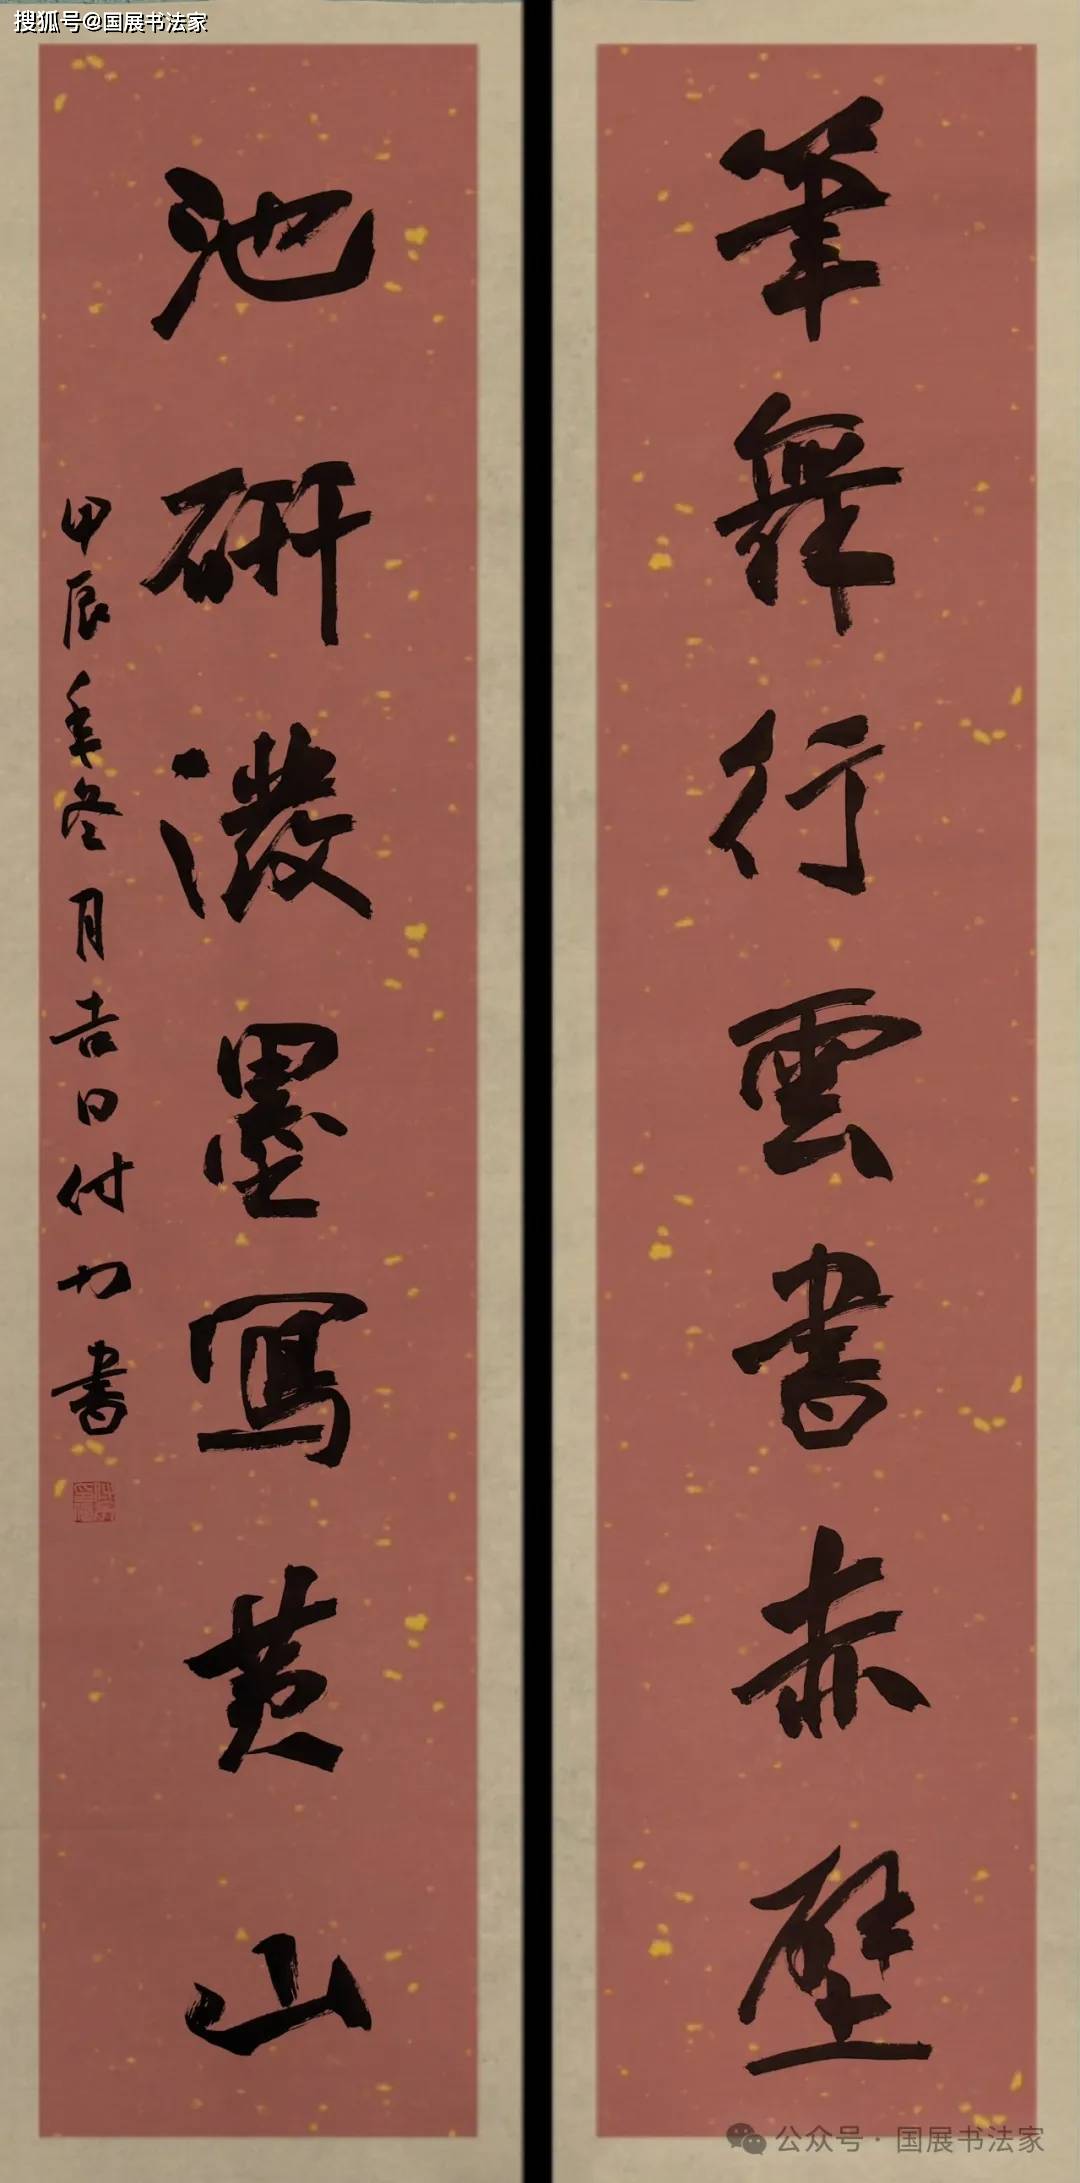 搜狐号@国展书法家
筆舞行雲書赤壁
池研濃墨寫黄山
甲辰年冬月吉日付力書
公众号·国展书法家